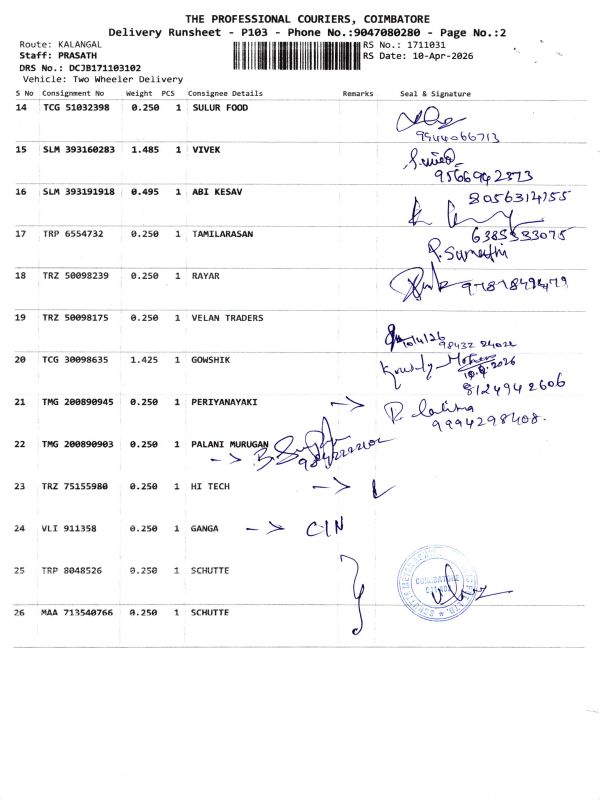 THE PROFESSIONAL COURIERS, COIMBATORE
Delivery Runsheet - P103 - Phone No.:9047080280 - Page No.:2
Route: KALANGAL
RS No.: 1711031
Staff: PRASATH
RS Date: 10-Apr-2026
DRS No.: DCJB171103102
Vehicle: Two Wheeler Delivery
S No Consignment No Weight PCS Consignee Details Remarks Seal & Signature
14 TCG 51032398 0.250 1 SULUR FOOD
9944066713
15 SLM 393160283 1.485 1 VIVEK
9566942373
16 SLM 393191918 0.495 1 ABI KESAV 8056314755
17 TRP 6554732 0.250 1 TAMILARASAN 6385333075
P. Sumathi
18 TRZ 50098239 0.250 1 RAYAR
19 TRZ 50098175 0.250 1 VELAN TRADERS
10/4/26
98432 24022
20 TCG 30098635 1.425 1 GOWSHIK
8124942606
21 TMG 200890945 0.250 1 PERIYANAYAKI →
9994298408.
22 TMG 200890903 0.250 1 PALANI MURUGAN
→
23 TRZ 75155980 0.250 1 HI TECH →
24 VLI 911358 0.250 1 GANGA → CIN
25 TRP 8048526 0.250 1 SCHUTTE
COIMBATORE
26 MAA 713540766 0.250 1 SCHUTTE